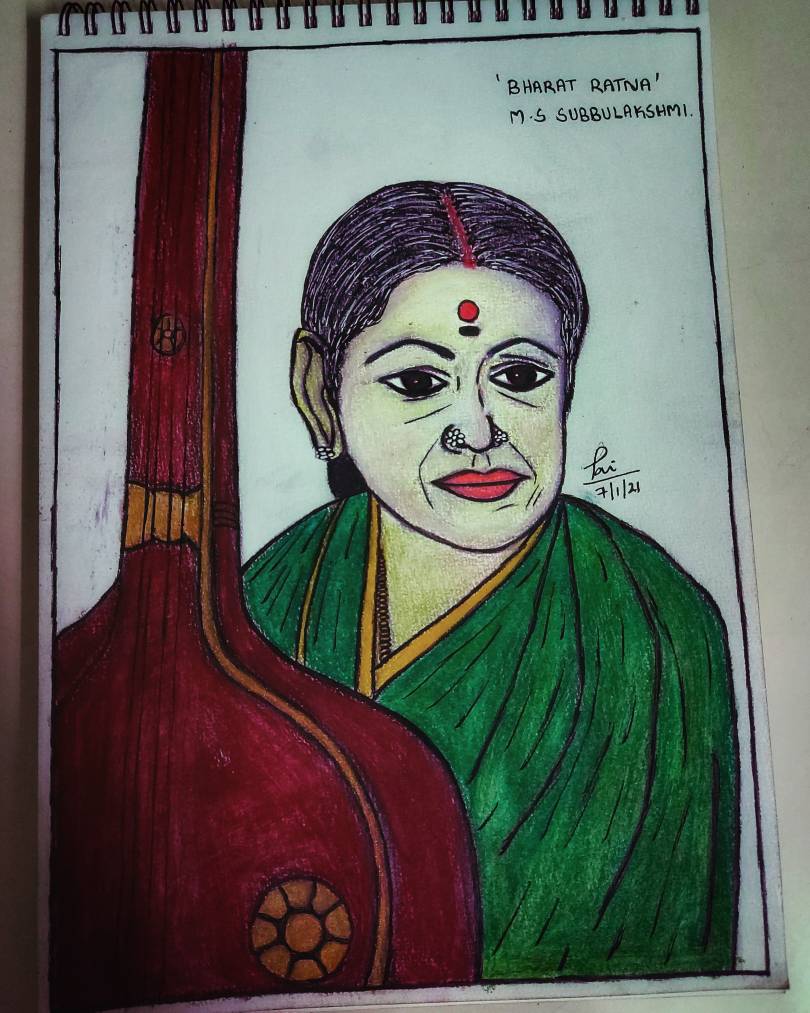 'BHARAT RATNA'
M.S SUBBULAKSHMI.
7/1/21